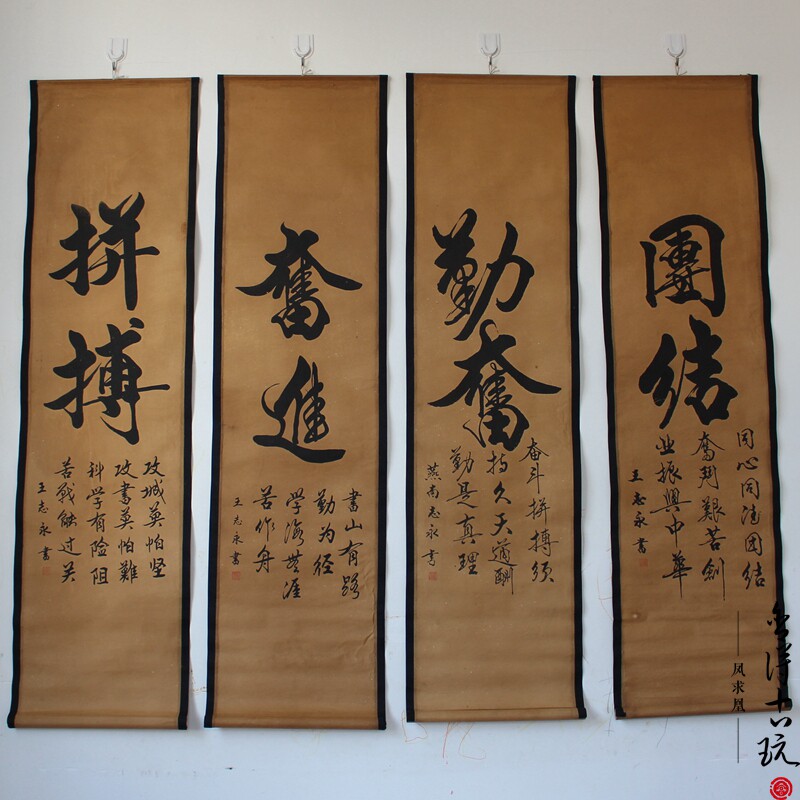 團結
同心同德团结
奮鬥艱苦創
业振興中華
王志永書
勤奮
奋斗拼搏须
持久天道酬
勤是真理
燕南志永書
奮進
書山有路
勤为径
学海無涯
苦作舟
王志永書
拼搏
攻城莫怕坚
攻書莫怕難
科学有险阻
苦战能过关
王志永書
凤求凰